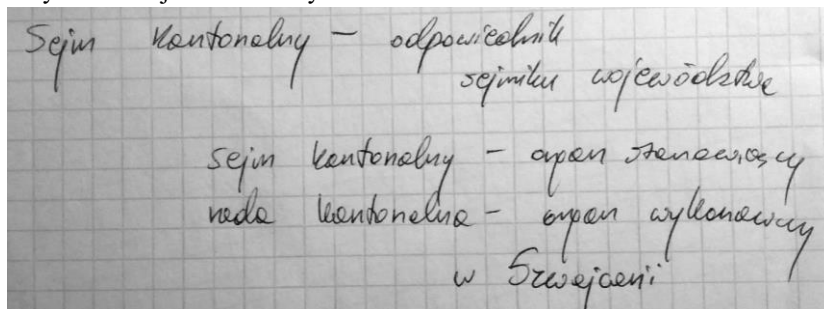 Sejm kantonalny – odpowiednik
sejmiku województwa
sejm kantonalny – organ stanowiący
rada kantonalna – organ wykonawczy
w Szwajcarii